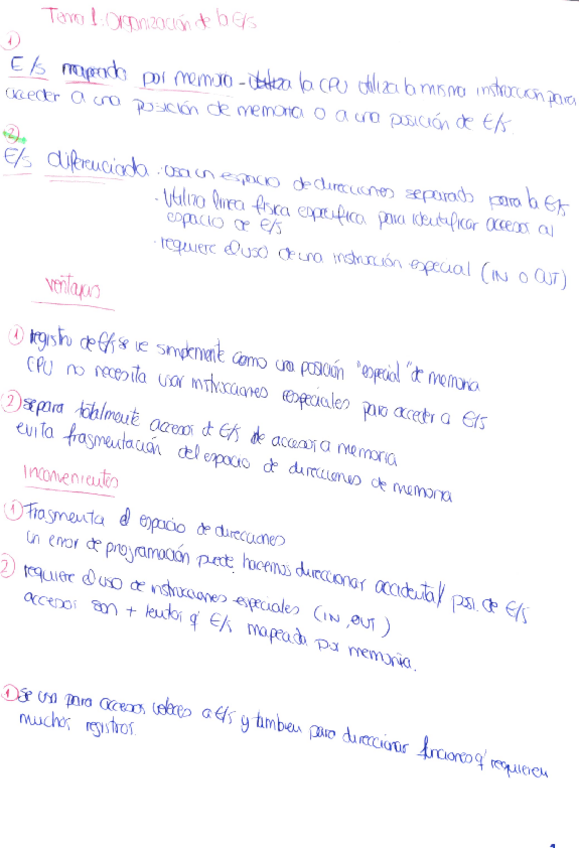 Tema 1: Organización de la E/S
①
E/S mapeada por memoria - utiliza la CPU utiliza la misma instrucción para
acceder a una posición de memoria o a una posición de E/S.
②
E/S diferenciada · usa un espacio de direcciones separado para la E/S
· Utiliza línea física específica para identificar accesos al
espacio de E/S
· requiere el uso de una instrucción especial (IN o OUT)
Ventajas
① registro de E/S se ve simplemente como una posición "especial" de memoria
CPU no necesita usar instrucciones especiales para acceder a E/S
② separa totalmente accesos d E/S de accesos a memoria
evita fragmentación del espacio de direcciones de memoria
Inconvenientes
① Fragmenta el espacio de direcciones
un error de programación puede hacernos direccionar accidental/ posi. de E/S
② requiere el uso de instrucciones especiales (IN, OUT)
accesos son + lentos q' E/S mapeada por memoria.
① se usa para accesos veloces a E/S y tambien para direccionar funciones q' requieren
muchos registros.
1